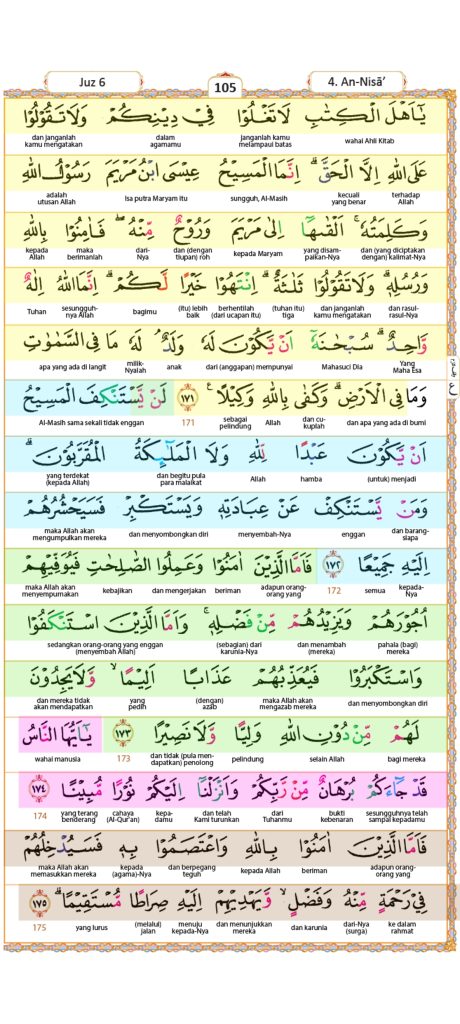 Juz 6
105
4. An-Nisā’
يٰٓاَهْلَ الْكِتٰبِ لَا تَغْلُوْا فِيْ دِيْنِكُمْ وَلَا تَقُوْلُوْا
wahai Ahli Kitab janganlah kamu melampaui batas dalam agamamu dan janganlah kamu mengatakan
عَلَى اللّٰهِ اِلَّا الْحَقَّۗ اِنَّمَا الْمَسِيْحُ عِيْسَى ابْنُ مَرْيَمَ رَسُوْلُ اللّٰهِ
terhadap Allah kecuali yang benar sungguh, Al-Masih Isa putra Maryam itu adalah utusan Allah
وَكَلِمَتُهٗۚ اَلْقٰىهَآ اِلٰى مَرْيَمَ وَرُوْحٌ مِّنْهُۖ فَاٰمِنُوْا بِاللّٰهِ
dan (yang diciptakan dengan) kalimat-Nya yang disampaikan-Nya kepada Maryam dan (dengan tiupan) roh dari-Nya maka berimanlah kepada Allah
وَرُسُلِهٖۗ وَلَا تَقُوْلُوْا ثَلٰثَةٌۗ اِنْتَهُوْا خَيْرًا لَّكُمْۗ اِنَّمَا اللّٰهُ اِلٰهٌ
dan rasul-rasul-Nya dan janganlah kamu mengatakan (tuhan itu) tiga berhentilah (dari ucapan itu) (itu) lebih baik bagimu sesungguhnya Allah Tuhan
وَّاحِدٌۗ سُبْحٰنَهٗٓ اَنْ يَّكُوْنَ لَهٗ وَلَدٌۘ لَهٗ مَا فِى السَّمٰوٰتِ
Yang Maha Esa Mahasuci Dia dari (anggapan) mempunyai anak milik-Nyalah apa yang ada di langit
وَمَا فِى الْاَرْضِۗ وَكَفٰى بِاللّٰهِ وَكِيْلًاࣖ ١٧١ لَنْ يَّسْتَنْكِفَ الْمَسِيْحُ
dan apa yang ada di bumi dan cukuplah Allah sebagai pelindung 171 Al-Masih sama sekali tidak enggan
اَنْ يَّكُوْنَ عَبْدًا لِّلّٰهِ وَلَا الْمَلٰۤىِٕكَةُ الْمُقَرَّبُوْنَۗ
(untuk) menjadi hamba Allah dan begitu pula para malaikat yang terdekat (kepada Allah)
وَمَنْ يَّسْتَنْكِفْ عَنْ عِبَادَتِهٖ وَيَسْتَكْبِرْ فَسَيَحْشُرُهُمْ
dan barangsiapa enggan menyembah-Nya dan menyombongkan diri maka Allah akan mengumpulkan mereka
اِلَيْهِ جَمِيْعًا ١٧٢ فَاَمَّا الَّذِيْنَ اٰمَنُوْا وَعَمِلُوا الصّٰلِحٰتِ فَيُوَفِّيْهِمْ
kepada-Nya semua 172 adapun orang-orang yang beriman dan mengerjakan kebajikan maka Allah akan menyempurnakan
اُجُوْرَهُمْ وَيَزِيْدُهُمْ مِّنْ فَضْلِهٖۚ وَاَمَّا الَّذِيْنَ اسْتَنْكَفُوْا
pahala (bagi) mereka dan menambah (mereka) (sebagian) dari karunia-Nya sedangkan orang-orang yang enggan (menyembah Allah)
وَاسْتَكْبَرُوْا فَيُعَذِّبُهُمْ عَذَابًا اَلِيْمًاۙ وَّلَا يَجِدُوْنَ
dan menyombongkan diri maka Allah akan mengazab mereka (dengan) azab yang pedih dan mereka tidak akan mendapatkan
لَهُمْ مِّنْ دُوْنِ اللّٰهِ وَلِيًّا وَّلَا نَصِيْرًا ١٧٣ يٰٓاَيُّهَا النَّاسُ
bagi mereka selain Allah pelindung dan tidak (pula mendapatkan) penolong 173 wahai manusia
قَدْ جَاۤءَكُمْ بُرْهَانٌ مِّنْ رَّبِّكُمْ وَاَنْزَلْنَآ اِلَيْكُمْ نُوْرًا مُّبِيْنًا ١٧٤
sesungguhnya telah sampai kepadamu bukti kebenaran dari Tuhanmu dan telah Kami turunkan kepadamu cahaya (Al-Qur’an) yang terang benderang 174
فَاَمَّا الَّذِيْنَ اٰمَنُوْا بِاللّٰهِ وَاعْتَصَمُوْا بِهٖ فَسَيُدْخِلُهُمْ
adapun orang-orang yang beriman kepada Allah dan berpegang teguh kepada (agama)-Nya maka Allah akan memasukkan mereka
فِيْ رَحْمَةٍ مِّنْهُ وَفَضْلٍۙ وَّيَهْدِيْهِمْ اِلَيْهِ صِرَاطًا مُّسْتَقِيْمًاۗ ١٧٥
ke dalam rahmat dari-Nya (surga) dan karunia dan menunjukkan mereka menuju kepada-Nya (melalui) jalan yang lurus 175